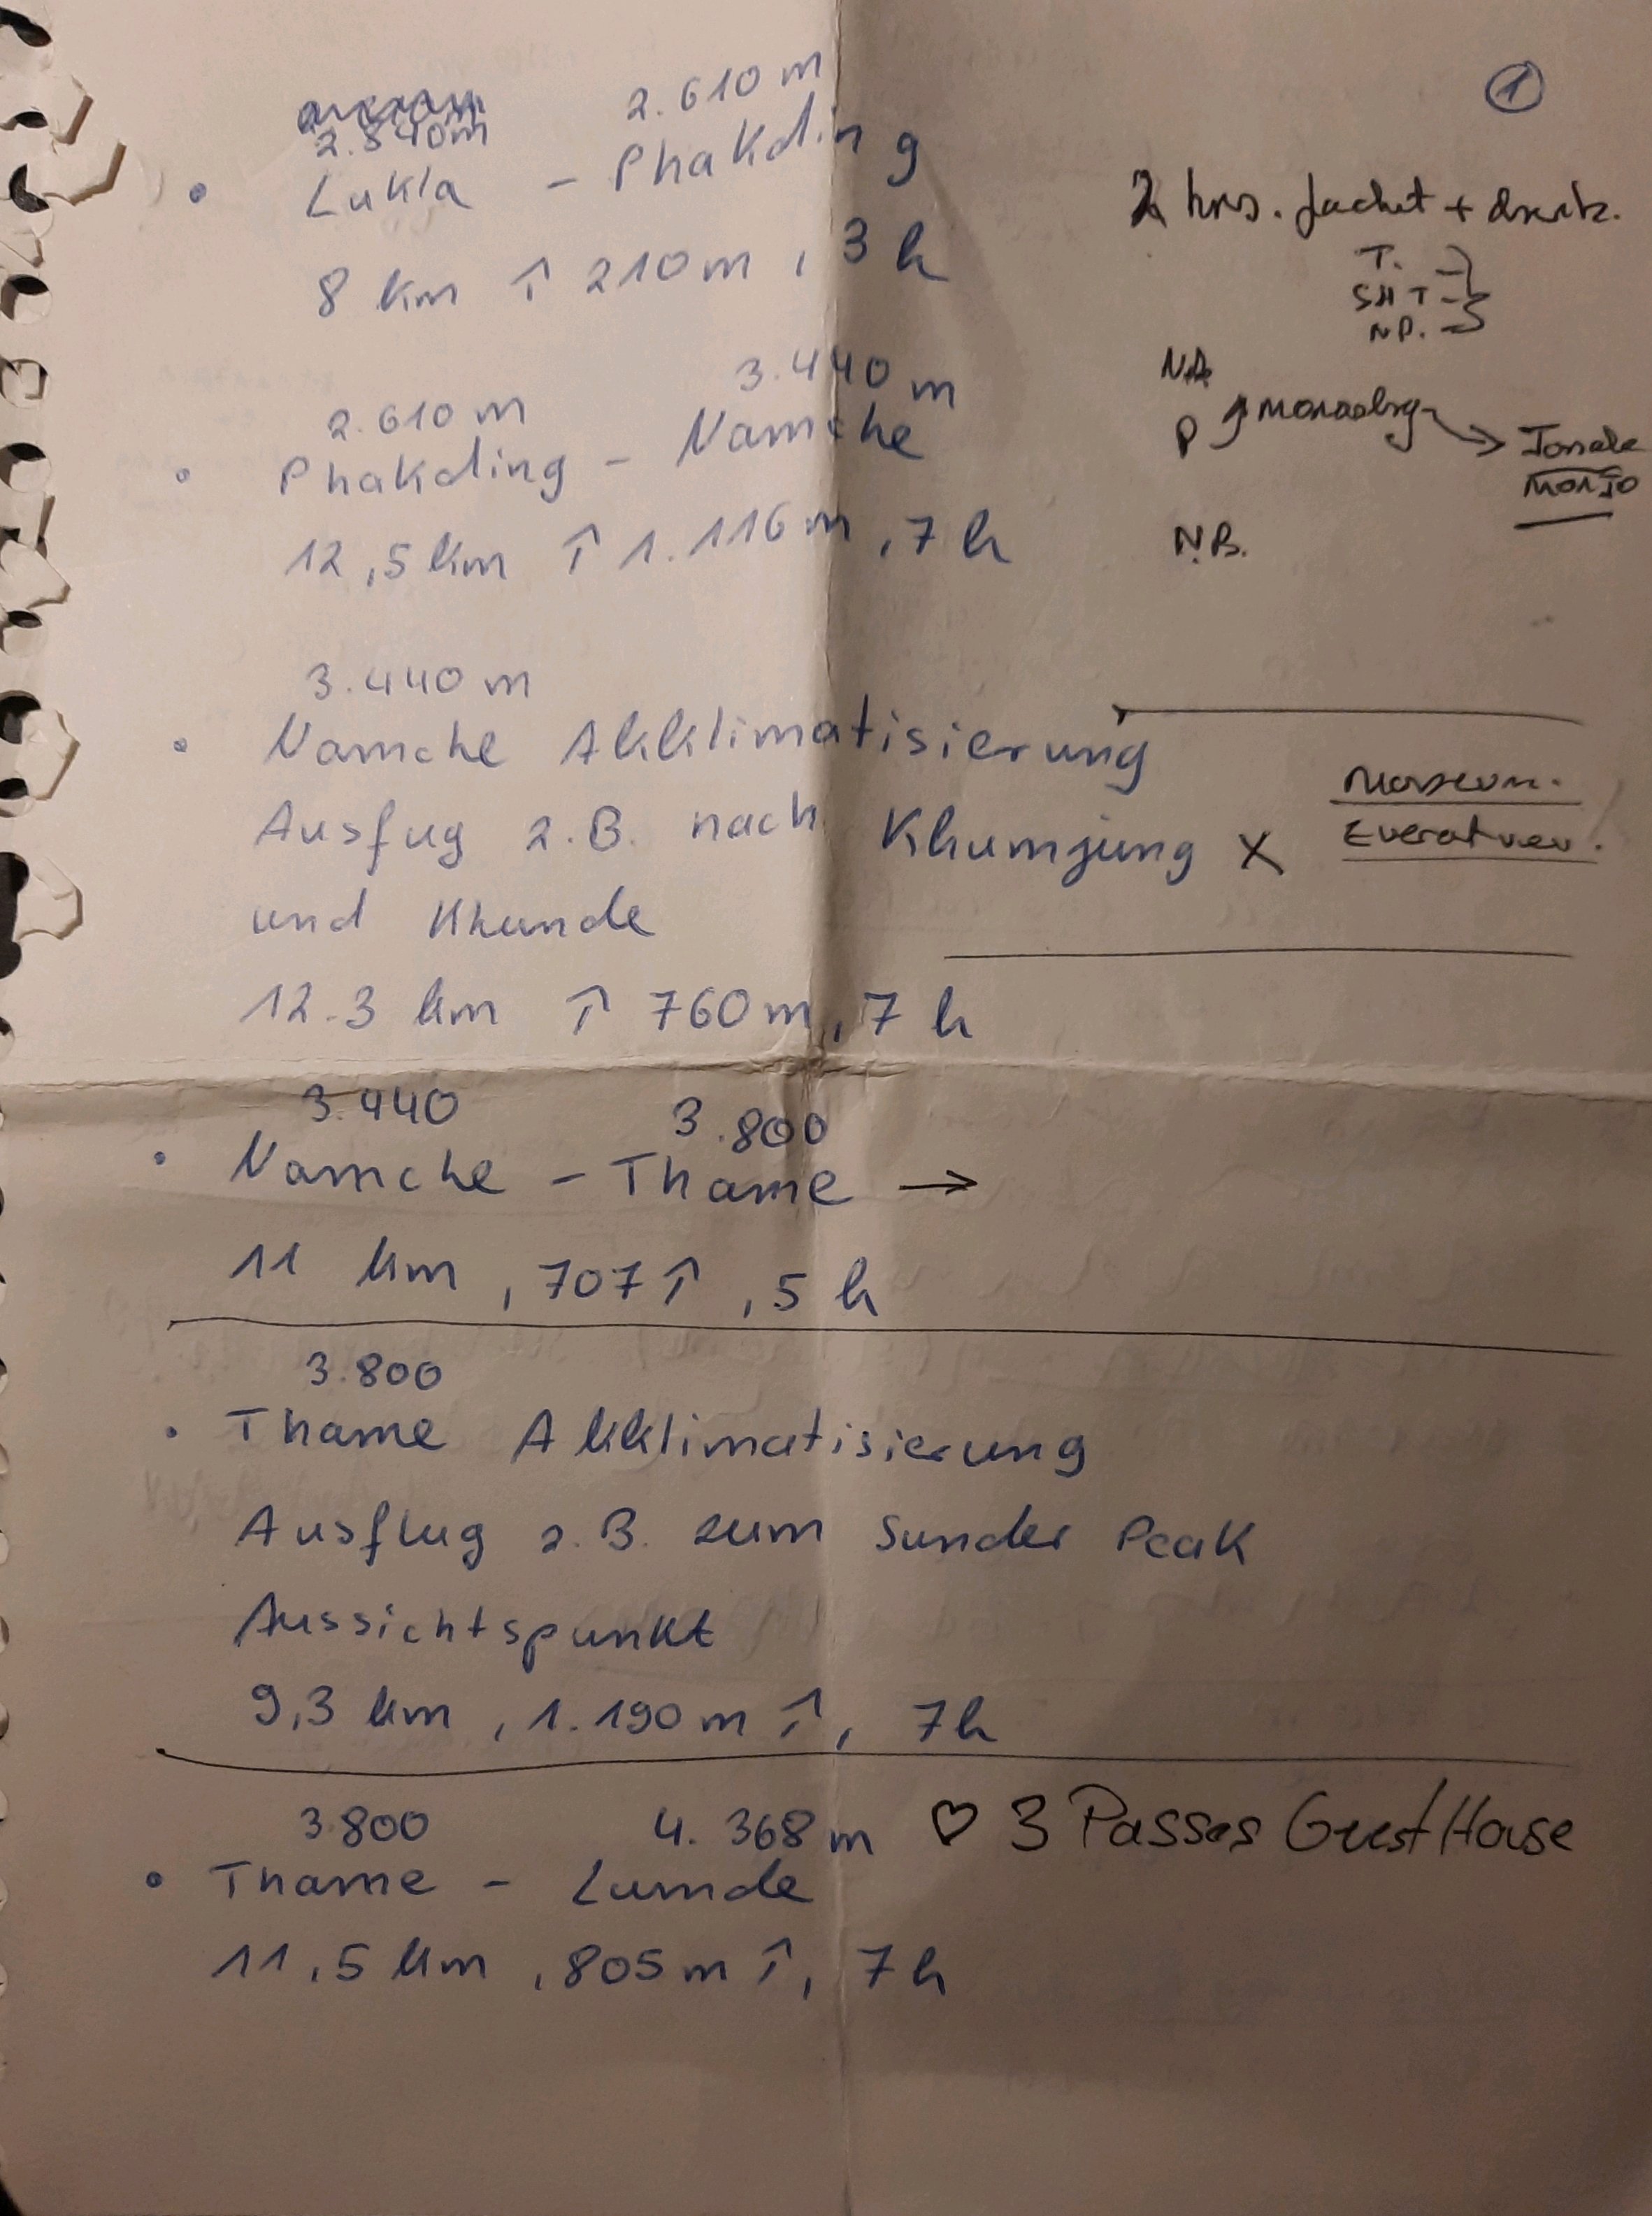 ①
2.840m 2.610 m
• Lukla - Phakding
8 km ↑ 210m, 3 h
2 hrs. Jacket +
T.
SH T
NP.
2.610 m 3.440 m
• Phakding - Namche
12,5 km ↑ 1.116 m, 7 h
P
Monjo
N.B.
3.440 m
• Namche Akklimatisierung
Ausfug z.B. nach Khumjung X
und Khunde
12.3 km ↑ 760m, 7 h
Museum.
3.440 3.800
• Namche - Thame →
11 km, 707 ↑, 5 h
3.800
• Thame Akklimatisierung
Ausflug z.B. zum Sunder Peak
Aussichtspunkt
9,3 km, 1.190 m ↑, 7h
3.800 4.368 m ♡ 3 Passes Guest House
• Thame - Lumde
11,5 km, 805m ↑, 7h